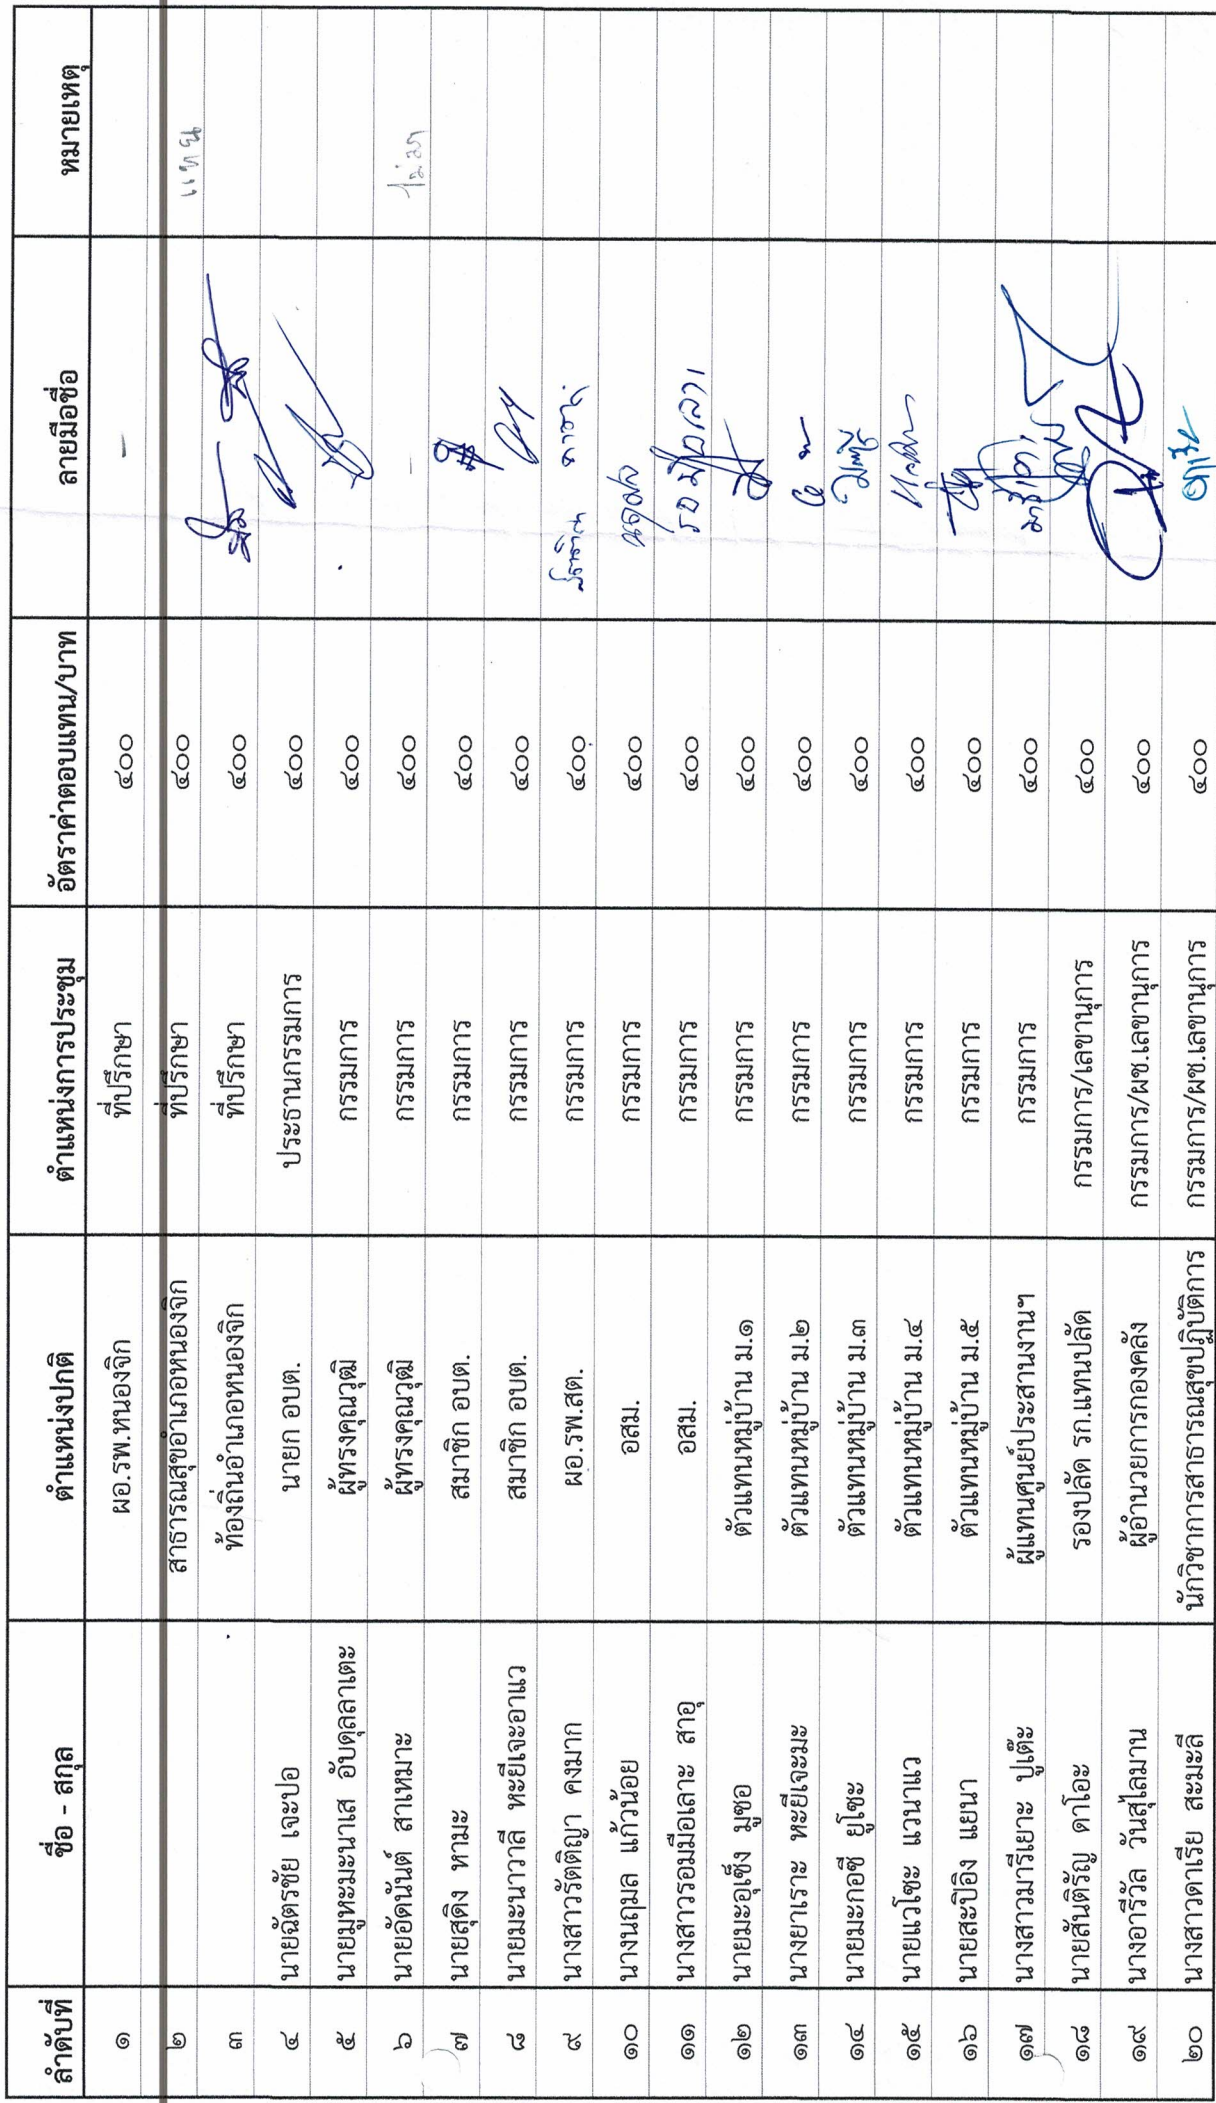 ลำดับที่ ชื่อ - สกุล ตำแหน่งปกติ ตำแหน่งการประชุม อัตราค่าตอบแทน/บาท ลายมือชื่อ หมายเหตุ
๑ ผอ.รพ.หนองจิก ที่ปรึกษา ๔๐๐ -
๒ สาธารณสุขอำเภอหนองจิก ที่ปรึกษา ๔๐๐ แทน
๓ ท้องถิ่นอำเภอหนองจิก ที่ปรึกษา ๔๐๐
๔ นายฉัตรชัย เจะปอ นายก อบต. ประธานกรรมการ ๔๐๐
๕ นายมูหะมะนาเส อับดุลลาเตะ ผู้ทรงคุณวุฒิ กรรมการ ๔๐๐
๖ นายอัดนันต์ สาเหมาะ ผู้ทรงคุณวุฒิ กรรมการ ๔๐๐ - ไม่มา
๗ นายสุดิง หามะ สมาชิก อบต. กรรมการ ๔๐๐
๘ นายมะนาวาลี หะยีเจะอาแว สมาชิก อบต. กรรมการ ๔๐๐
๙ นางสาวรัตติญา คงมาก ผอ.รพ.สต. กรรมการ ๔๐๐
๑๐ นางนฤมล แก้วน้อย อสม. กรรมการ ๔๐๐ นฤมล
๑๑ นางสาวรอมมือเลาะ สาอุ อสม. กรรมการ ๔๐๐
๑๒ นายมะอุเซ็ง มูซอ ตัวแทนหมู่บ้าน ม.๑ กรรมการ ๔๐๐
๑๓ นางยาเราะ หะยีเจะมะ ตัวแทนหมู่บ้าน ม.๒ กรรมการ ๔๐๐
๑๔ นายมะกอซี ยูโซะ ตัวแทนหมู่บ้าน ม.๓ กรรมการ ๔๐๐
๑๕ นายแวโซะ แวนาแว ตัวแทนหมู่บ้าน ม.๔ กรรมการ ๔๐๐
๑๖ นายสะปิอิง แยนา ตัวแทนหมู่บ้าน ม.๕ กรรมการ ๔๐๐
๑๗ นางสาวมารีเยาะ ปูเต๊ะ ผู้แทนศูนย์ประสานงานฯ กรรมการ ๔๐๐
๑๘ นายสันติรัญ ดาโอะ รองปลัด รก.แทนปลัด กรรมการ/เลขานุการ ๔๐๐
๑๙ นางอารีวัล วันสุไลมาน ผู้อำนวยการกองคลัง กรรมการ/ผช.เลขานุการ ๔๐๐
๒๐ นางสาวดาเรีย สะมะลี นักวิชาการสาธารณสุขปฏิบัติการ กรรมการ/ผช.เลขานุการ ๔๐๐